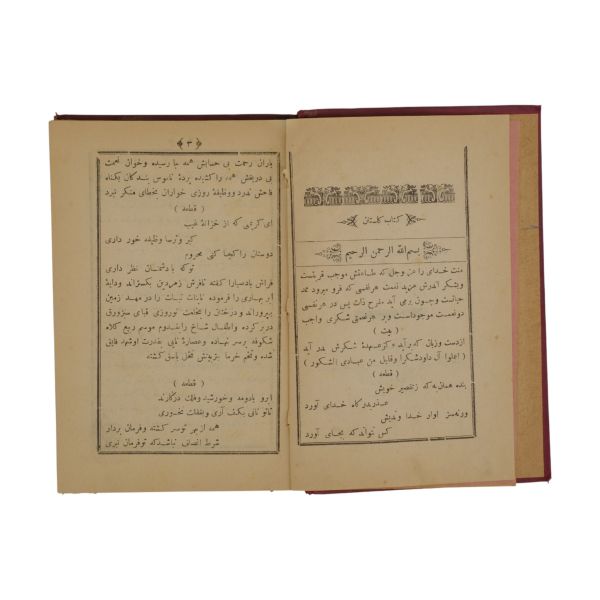 كتاب كلستان
بسم الله الرحمن الرحيم
منت خدای را عز وجل که طاعتش موجب قربتست
وبشکر اندرش مزید نعمت هرنفسی که فرو میرود ممد
حیاتست وچون برمی آید مفرح ذات پس در هرنفسی
دونعمت موجوداست وبر هرنعمتی شکری واجب
( بیت )
ازدست وزبان که برآید کزعهدهٔ شکرش بدر آید
( اعلوا آل داودشکرا وقلیل من عبادی الشکور )
( قطعه )
بنده همان به که زتقصیر خویش
عذر بدرگاه خدای آورد
ورنه سزاوار خدا وندیش
کس نتواند که بجای آورد
﴿ ٣ ﴾
باران رحمت بی حسابش همه جا رسیده وخوان نعمت
بی دریغش همه جا کشیده پردهٔ ناموس بندگان بکناه
فاحش ندرد ووظیفهٔ روزی خواران بخطای منکر نبرد
( قطعه )
ای کریمی که از خزانهٔ غیب
کبر وترسا وظیفه خور داری
دوستان راکجا کنی محروم
توکه بادشمنان نظر داری
فراش بادصبارا کفته تافرش زمردین بکستراند ودایهٔ
ابر بهاری را فرموده تابنات نبات را در مهد زمین
بپروراند ودرختان را بخلعت نوروزی قبای سبزورق
دربرکرده واطفال شاخ را بقدوم موسم ربیع کلاه
شکوفه برسر نهاده وعصارهٔ نایی بقدرت اوشهد فایق
شده وتخم خرما بتربیتش نخل باسق کشته
( قطعه )
ابرو بادومه وخورشید وفلک درکارند
تاتو نانی بکف آری وبغفلت نخوری
همه ازبهر توسر کشته وفرمان بردار
شرط انصاف نباشد که توفرمان نبری